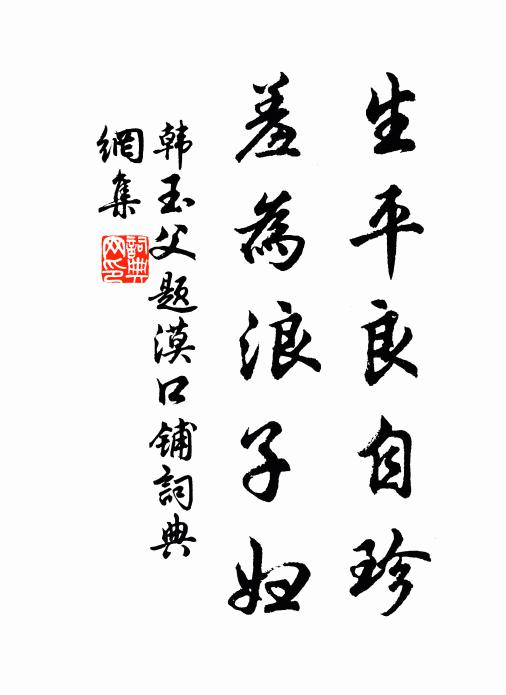 生平良自珍
羞為浪子婦
韩玉父题漠口铺詞典
網集
詞典网印